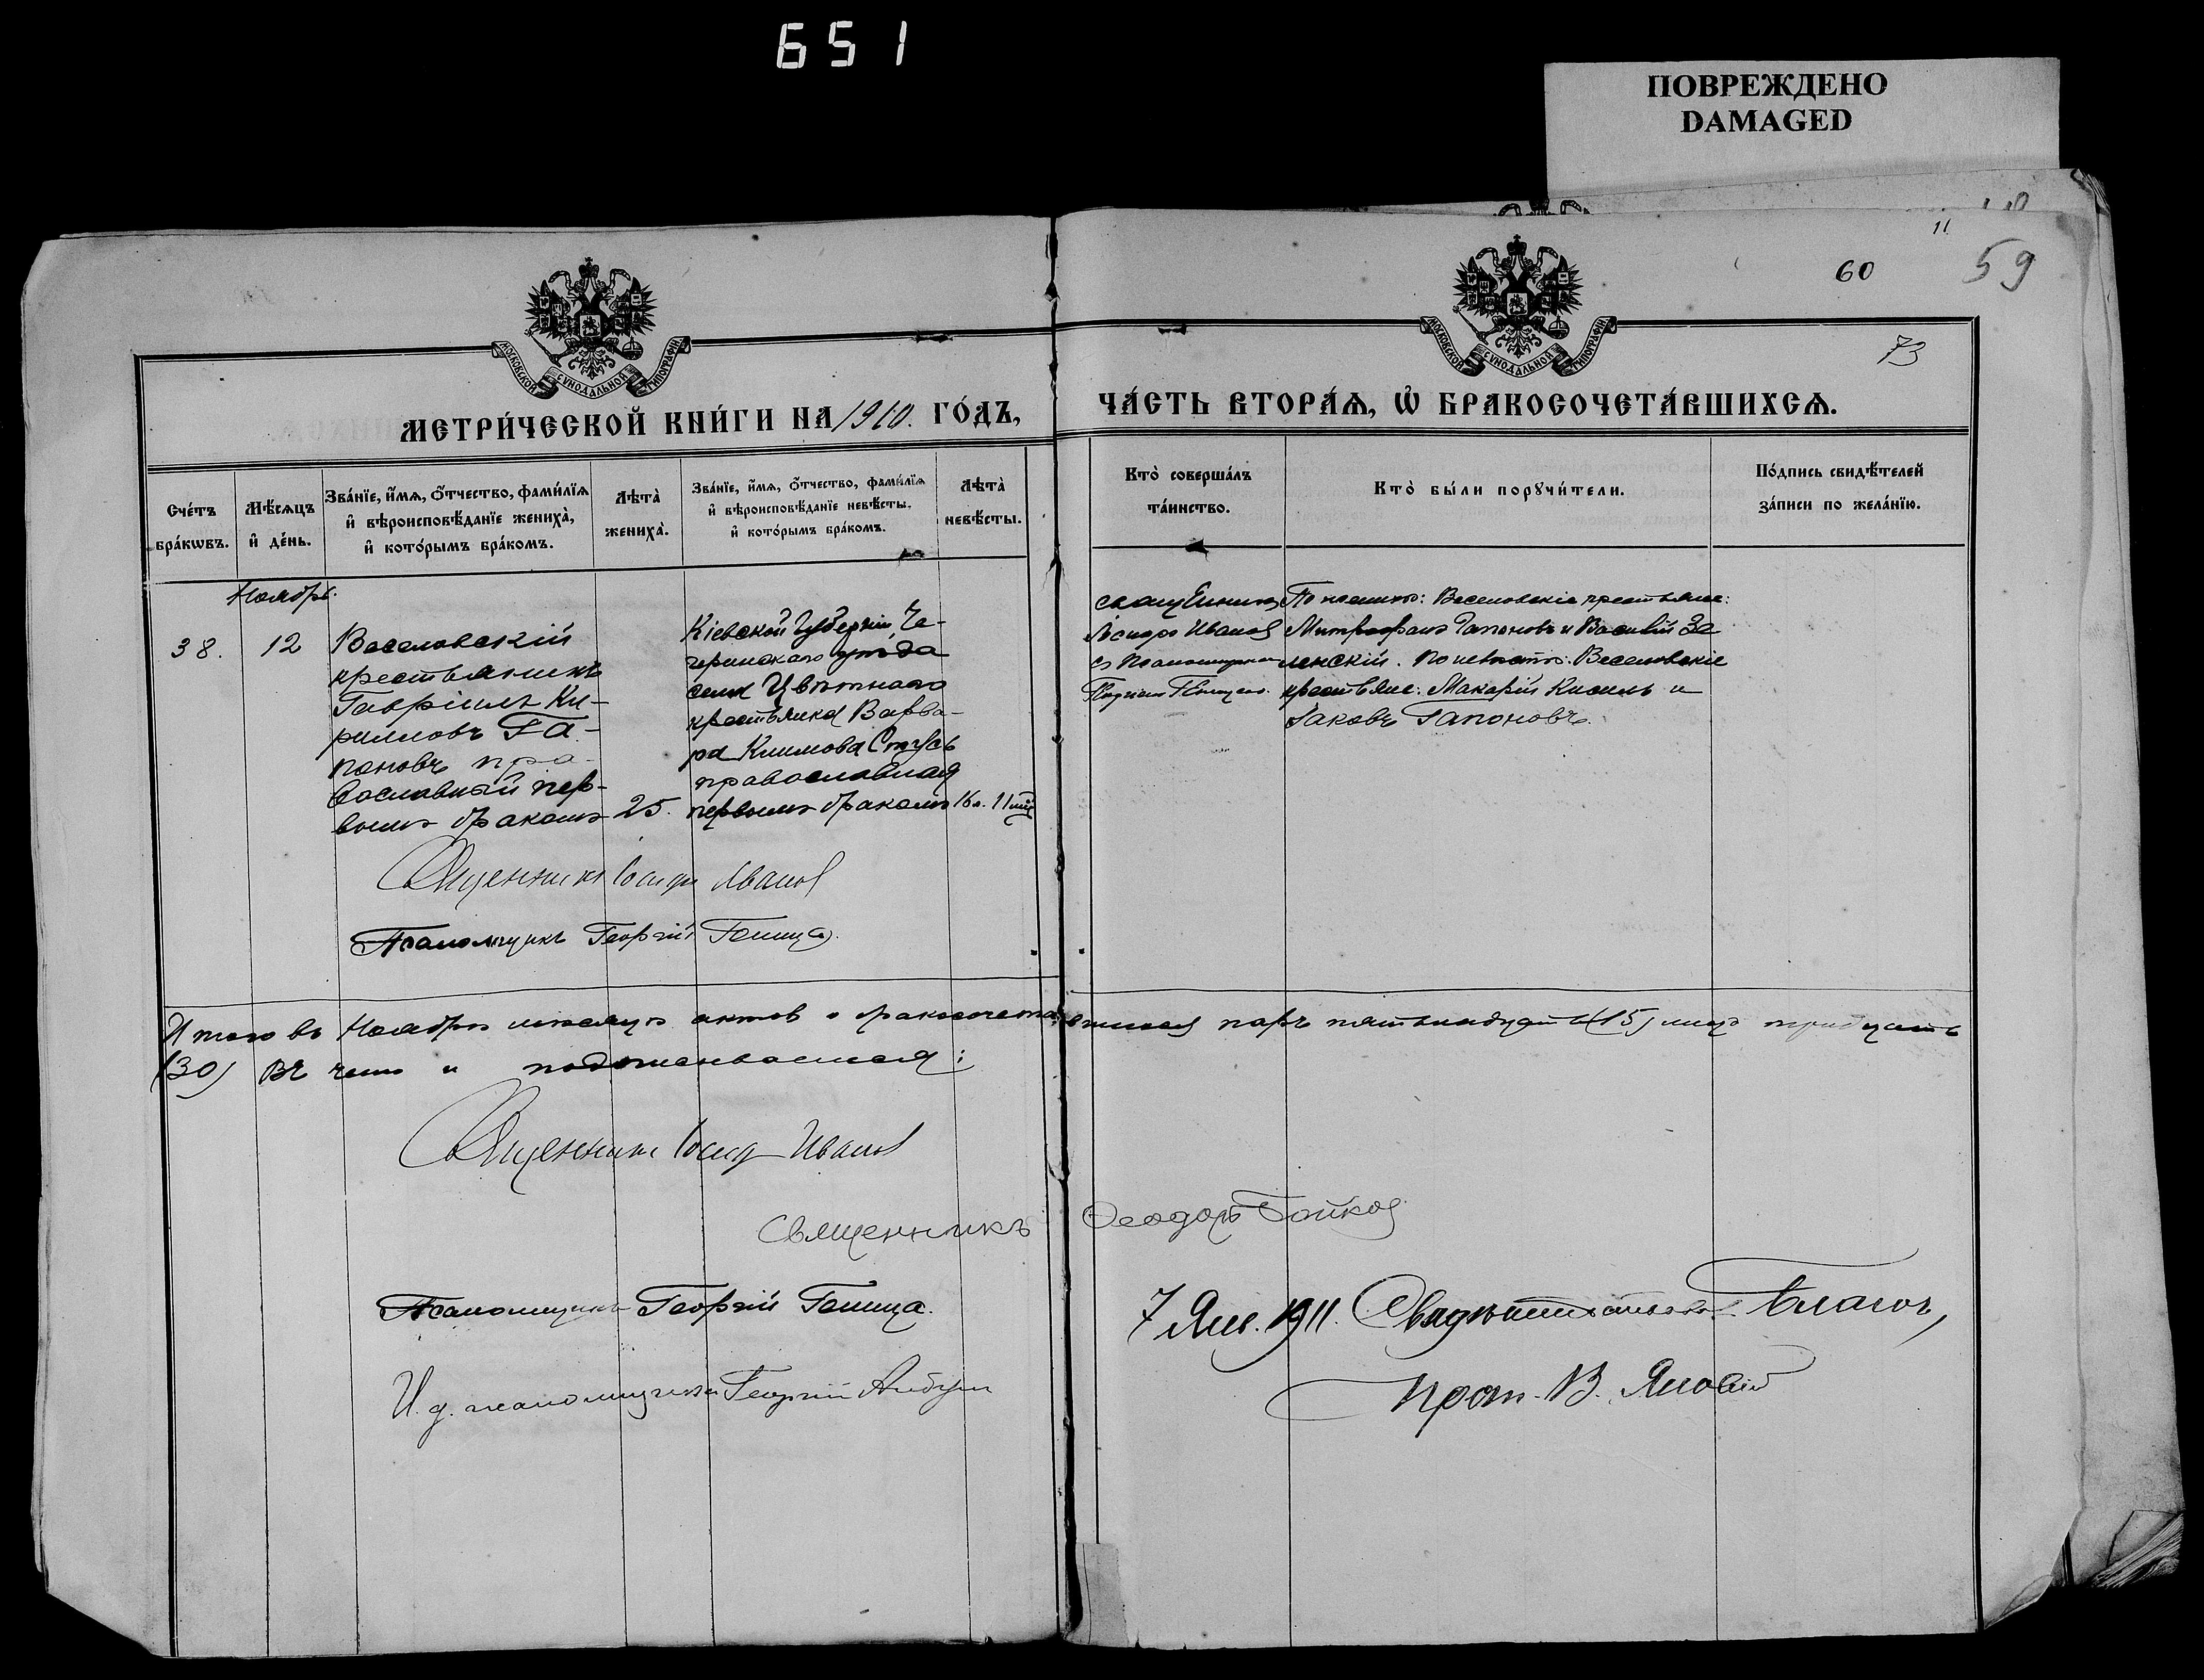 651
ПОВРЕЖДЕНО
DAMAGED
11
60
59
73
МОСКОВСКОЙ СѴНОДАЛЬНОЙ ТИПОГРАФІИ
МОСКОВСКОЙ СѴНОДАЛЬНОЙ ТИПОГРАФІИ
МЕТРИ́ЧЕСКОЙ КНИ́ГИ НА 1910. ГО́ДЪ,
ЧА́СТЬ ВТОРА́Ѧ, Ѡ҆ БРАКОСОЧЕТА́ВШИХСѦ.
Сче́тъ бра́кѡвъ.
Мѣ́сѧцъ и҆ де́нь.
Зва́нїе, и҆́мѧ, ѻ҆́тчество, фами́лїѧ и҆ вѣроисповѣ́данїе жениха̀, и҆ кото́рымъ бра́комъ.
Лѣта̀ жениха̀.
Зва́нїе, и҆́мѧ, ѻ҆́тчество, фами́лїѧ и҆ вѣроисповѣ́данїе невѣ́сты, и҆ кото́рымъ бра́комъ.
Лѣта̀ невѣ́сты.
Кто̀ соверша́лъ та́инство.
Кто̀ бы́ли порꙋчи́тели.
По́дпись свидѣ́телей за́писи по жела́нїю.
Ноябрь.
38.
12
Веселовскій
крестьянинъ
Гавріилъ Ки-
рилловъ Га-
поновъ пра-
вославный пер-
вымъ бракомъ
25.
Кіевской губерніи Че-
геринскаго уѣзда
села Цвѣтнаго
крестьянка Варва-
ра Климова Стусь
православная
первымъ бракомъ
16 л. 11 мѣс
Священникъ
Іосифъ Иванов
съ Псаломщикомъ
По женихѣ: Веселовскіе крестьяне:
Митрофанъ Гапоновъ и Василій Зе
ленскій. По невѣстѣ: Веселовскіе
крестьяне: Макарій Кисиль и
Іаковъ Гапоновъ.
Священникъ Іосифъ Иванов
Псаломщикъ Георгій Гепица.
Итого въ Ноябрѣ мѣсяцѣ актов о бракосочетавшихся паръ пятьнадцать (15) лицъ тридцать
(30) Въ чемъ и подписываемся:
Священникъ Іосифъ Иванов
Священникъ Ѳеодоръ Бойков
Псаломщикъ Георгій Гепица.
И. д. псаломщика Георгій
7 Янв. 1911. Благоч,
Прот. В.